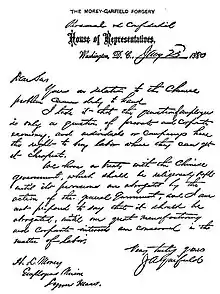 THE MOREY-GARFIELD FORGERY
Personal & Confidential
House of Representatives.
Washington, D. C., Jany 23 1880
Dear Sir,
Yours in relation to the Chinese
problem came duly to hand.
I take it that the question of employees
is only a question of private and corporate
economy, and individuals or companys have
the right to buy labor where they can get
it cheapest.
We have a treaty with the Chinese
government, which should be religiously kept
until its provisions are abrogated by the
action of the general Government, and I am
not prepared to say that it should be
abrogated, until our great manufacturing
and corporate interests are conserved in the
matter of labor.
Very truly yours
J A Garfield
H. L. Morey
Employers Union
Lynn Mass.